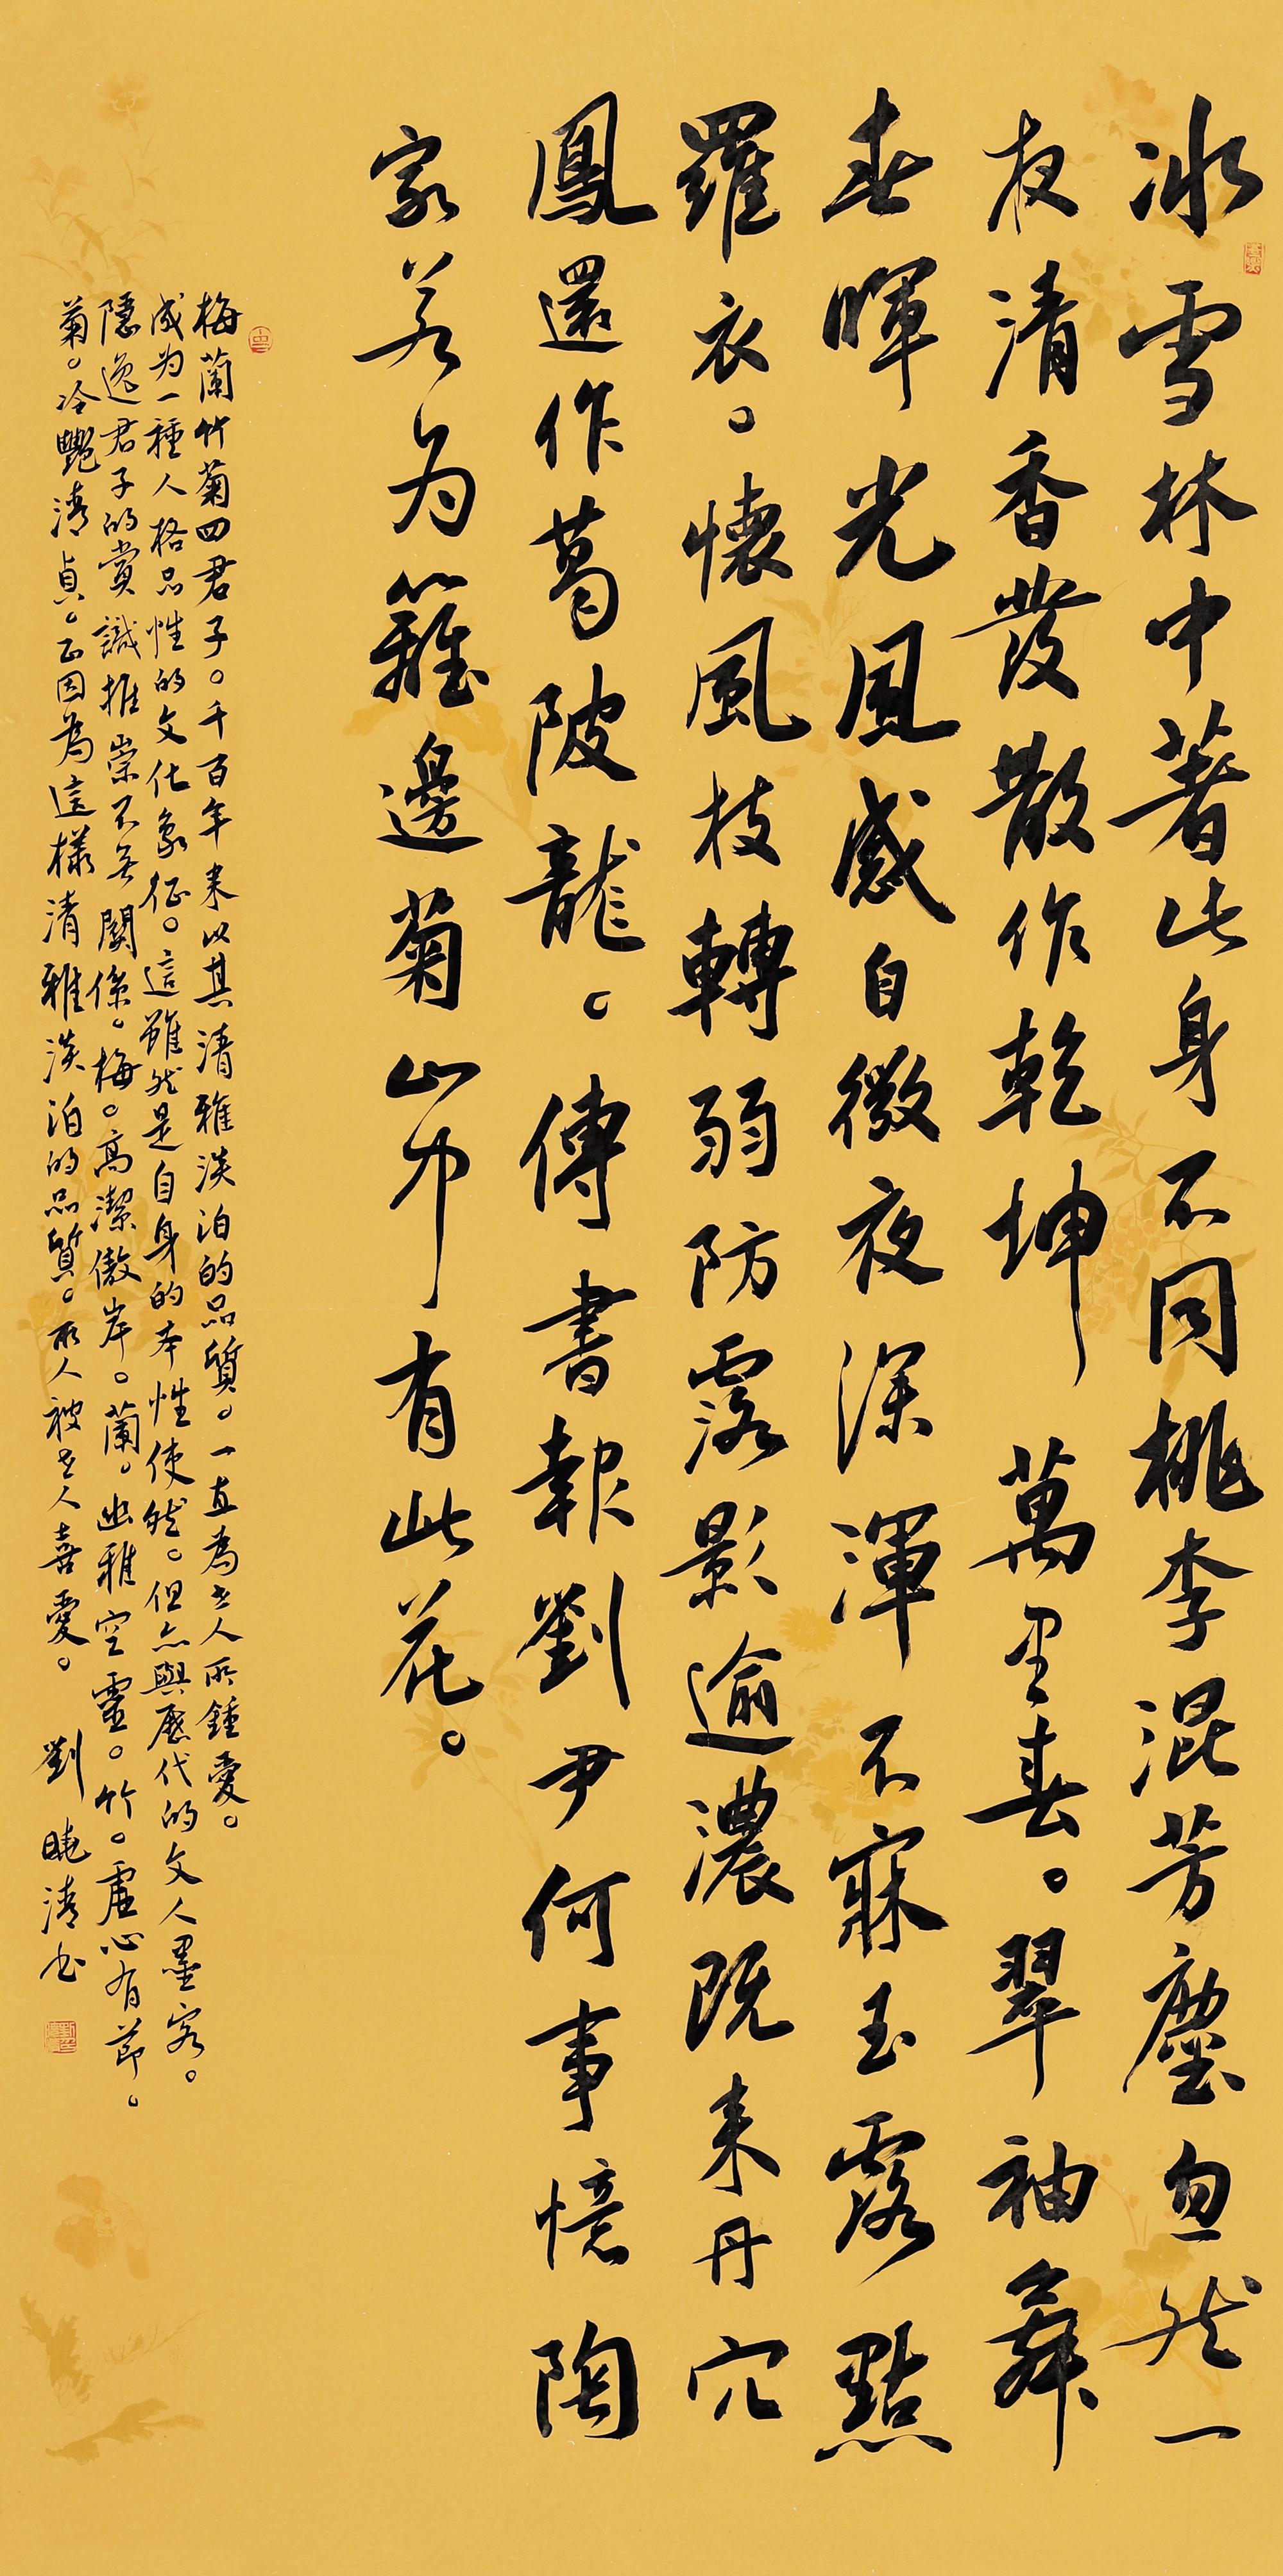 冰雪林中著此身不同桃李混芳塵忽然一
夜清香發散作乾坤萬里春。翠袖舞
春暉光風感自微夜深渾不寐玉露點
羅衣。懷風枝轉弱防露影逾濃既来丹穴
鳳還作葛陂龍。傳書報劉尹何事憶陶
家若为籬邊菊山中有此花。
梅蘭竹菊四君子。千百年来以其清雅淡泊的品質。一直為世人所鍾愛。
成为一種人格品性的文化象征。這雖然是自身的本性使然。但亦與歷代的文人墨客。
隱逸君子的賞識推崇不無關係。梅。高潔傲岸。蘭。幽雅空靈。竹。虛心有節。
菊。冷艷清貞。正因為這樣清雅淡泊的品質。所人被世人喜愛。 劉曉清书